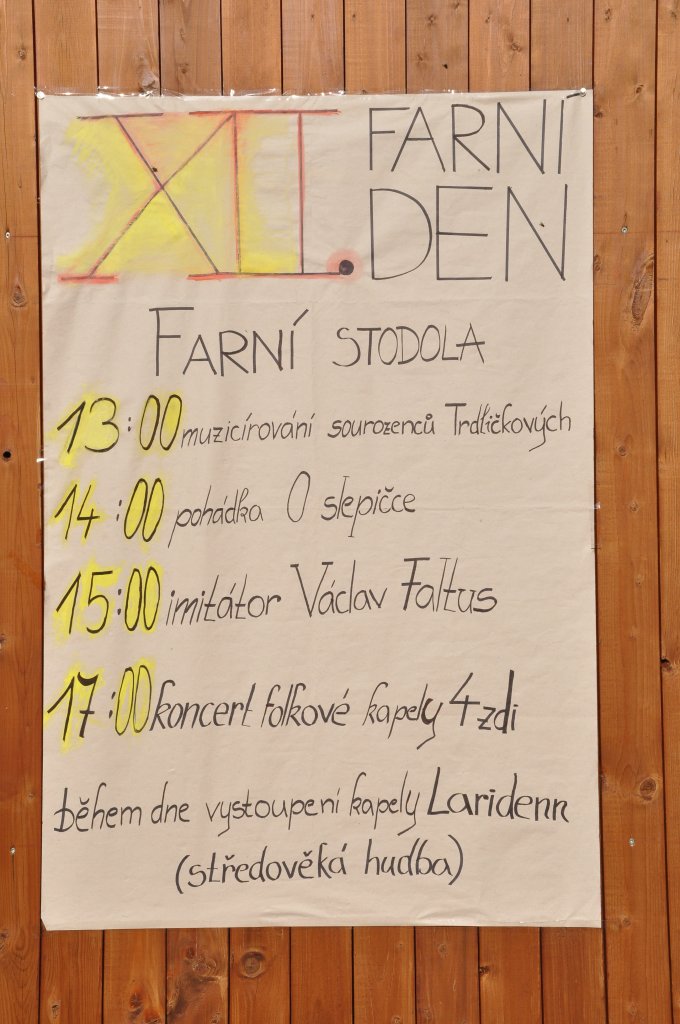 XII. FARNÍ
DEN
FARNÍ STODOLA
13:00 muzicírování sourozenců Trdličkových
14:00 pohádka O slepičce
15:00 imitátor Václav Faltus
17:00 koncert folkové kapely 4 zdi
během dne vystoupení kapely Laridenn
(středověká hudba)